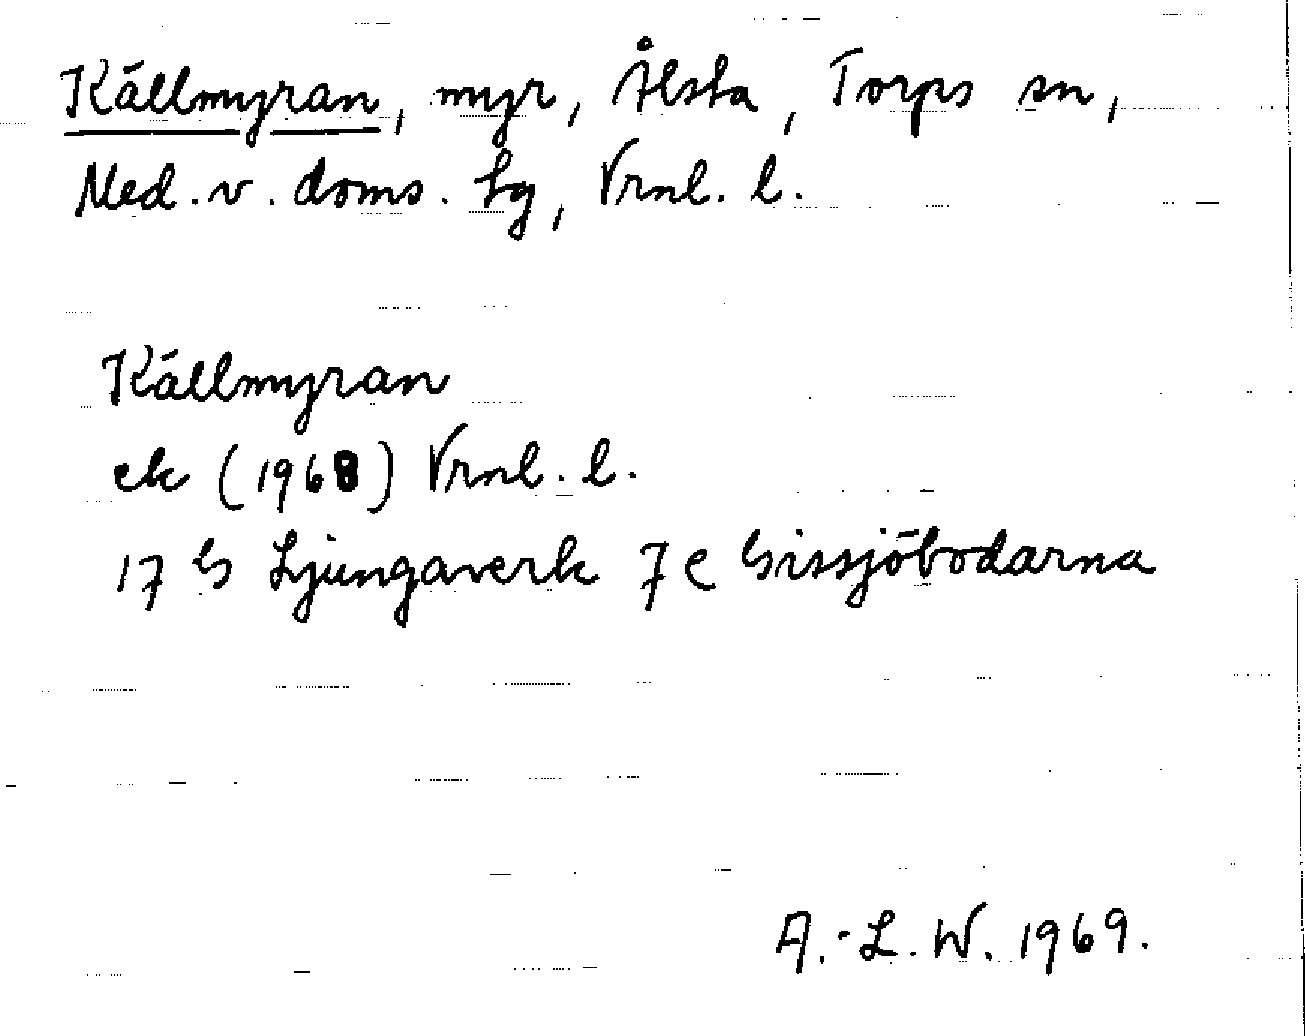 Källmyran, myr, Ålsta, Torps sn,
Med. v. doms. lg, Vrnl. l.
Källmyran
ek (1968) Vrnl. l.
17 G Ljungaverk 7 e Gissjöbodarna
A.-L. W. 1969.